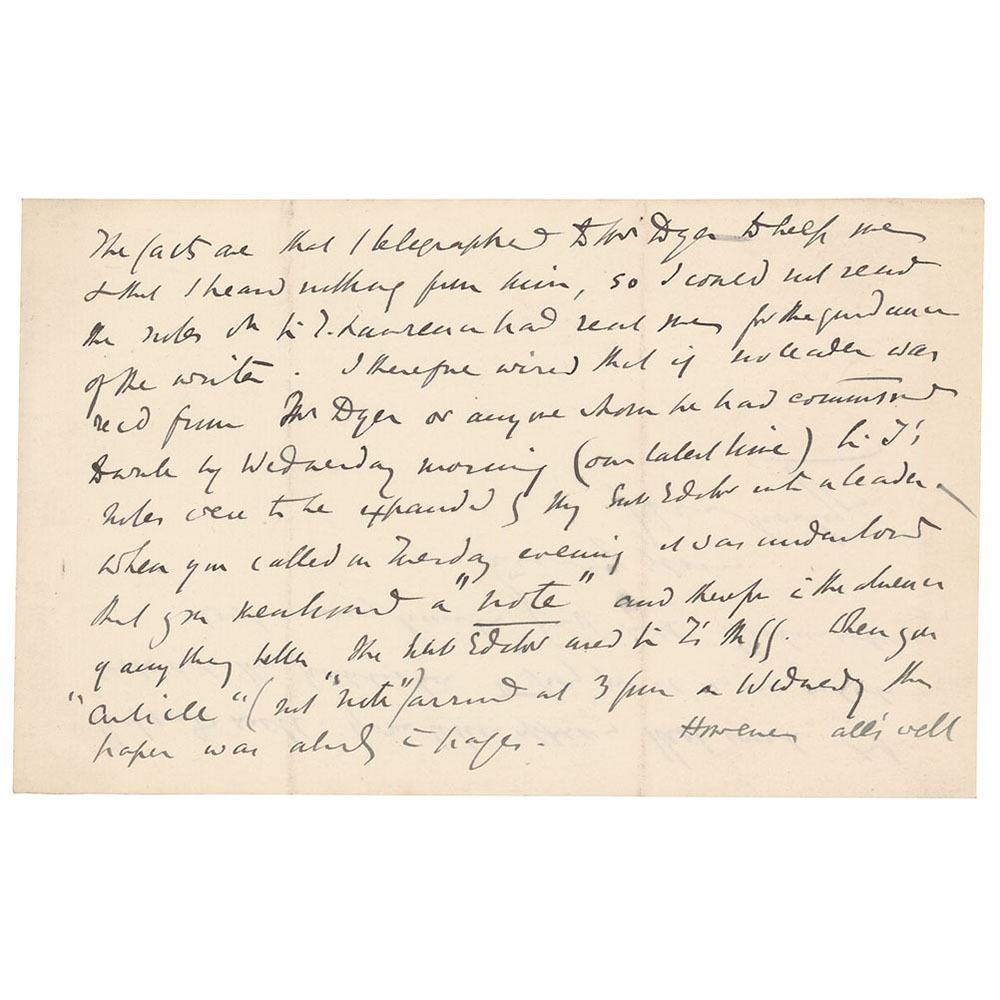 The facts are that I telegraphed to Mr Dyer to help me
& that I heard nothing from him, so I could not send
the notes wh Sir T. Lawrence had sent me for the guidance
of the writer. I therefore wired that if no leader was
recd from Mr Dyer or anyone whom he had commissioned
to write by Wednesday morning (our latest time) Sir T's
notes were to be expanded by my Sub Editor into a leader.
When you called on Tuesday evening it was understood
that you mentioned a "note" and therefore in the absence
of anything better the Sub Editor used Sir T's Mss. When your
"article" (not "note") arrived at 3 pm on Wednesday the
paper was already in pages. However all's well